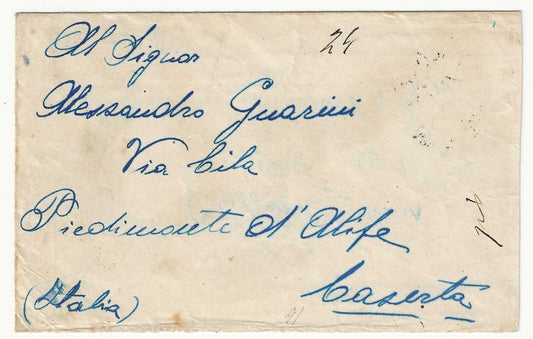 Al Signor
24
Alessandro Guarini
Via Cila
Piedimonte d'Alife
Caserta
(Italia)